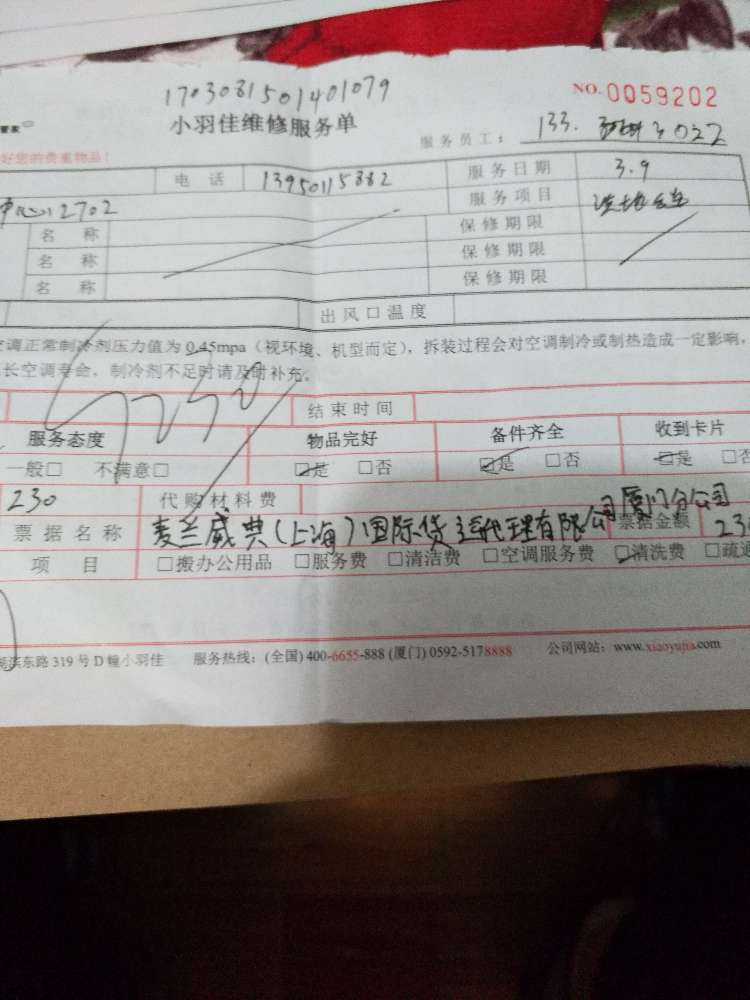 1703081501401079
NO. 0059202
管家
小羽佳维修服务单
服务员工： 133. 3022
好您的贵重物品！
电 话 13950115882 服务日期 3.9
中心2702 服务项目 洗地毯
名 称 保修期限
名 称 保修期限
名 称 保修期限
出风口温度
调正常制冷剂压力值为 0.45mpa（视环境、机型而定），拆装过程会对空调制冷或制热造成一定影响，
长空调寿命，制冷剂不足时请及时补充。
结束时间
服务态度 物品完好 备件齐全 收到卡片
一般□ 不满意□ ☑是 □否 ☑是 □否 ☑是 □否
230 代购材料费
票据名称 麦兰威典(上海)国际货运代理有限公司厦门分公司 票据金额 23
项 目 □搬办公用品 □服务费 □清洁费 □空调服务费 ☑清洗费 □疏通
滨东路 319 号 D 幢小羽佳 服务热线：(全国) 400-6655-888 (厦门) 0592-5178888 公司网站：www.xiaoyujia.com